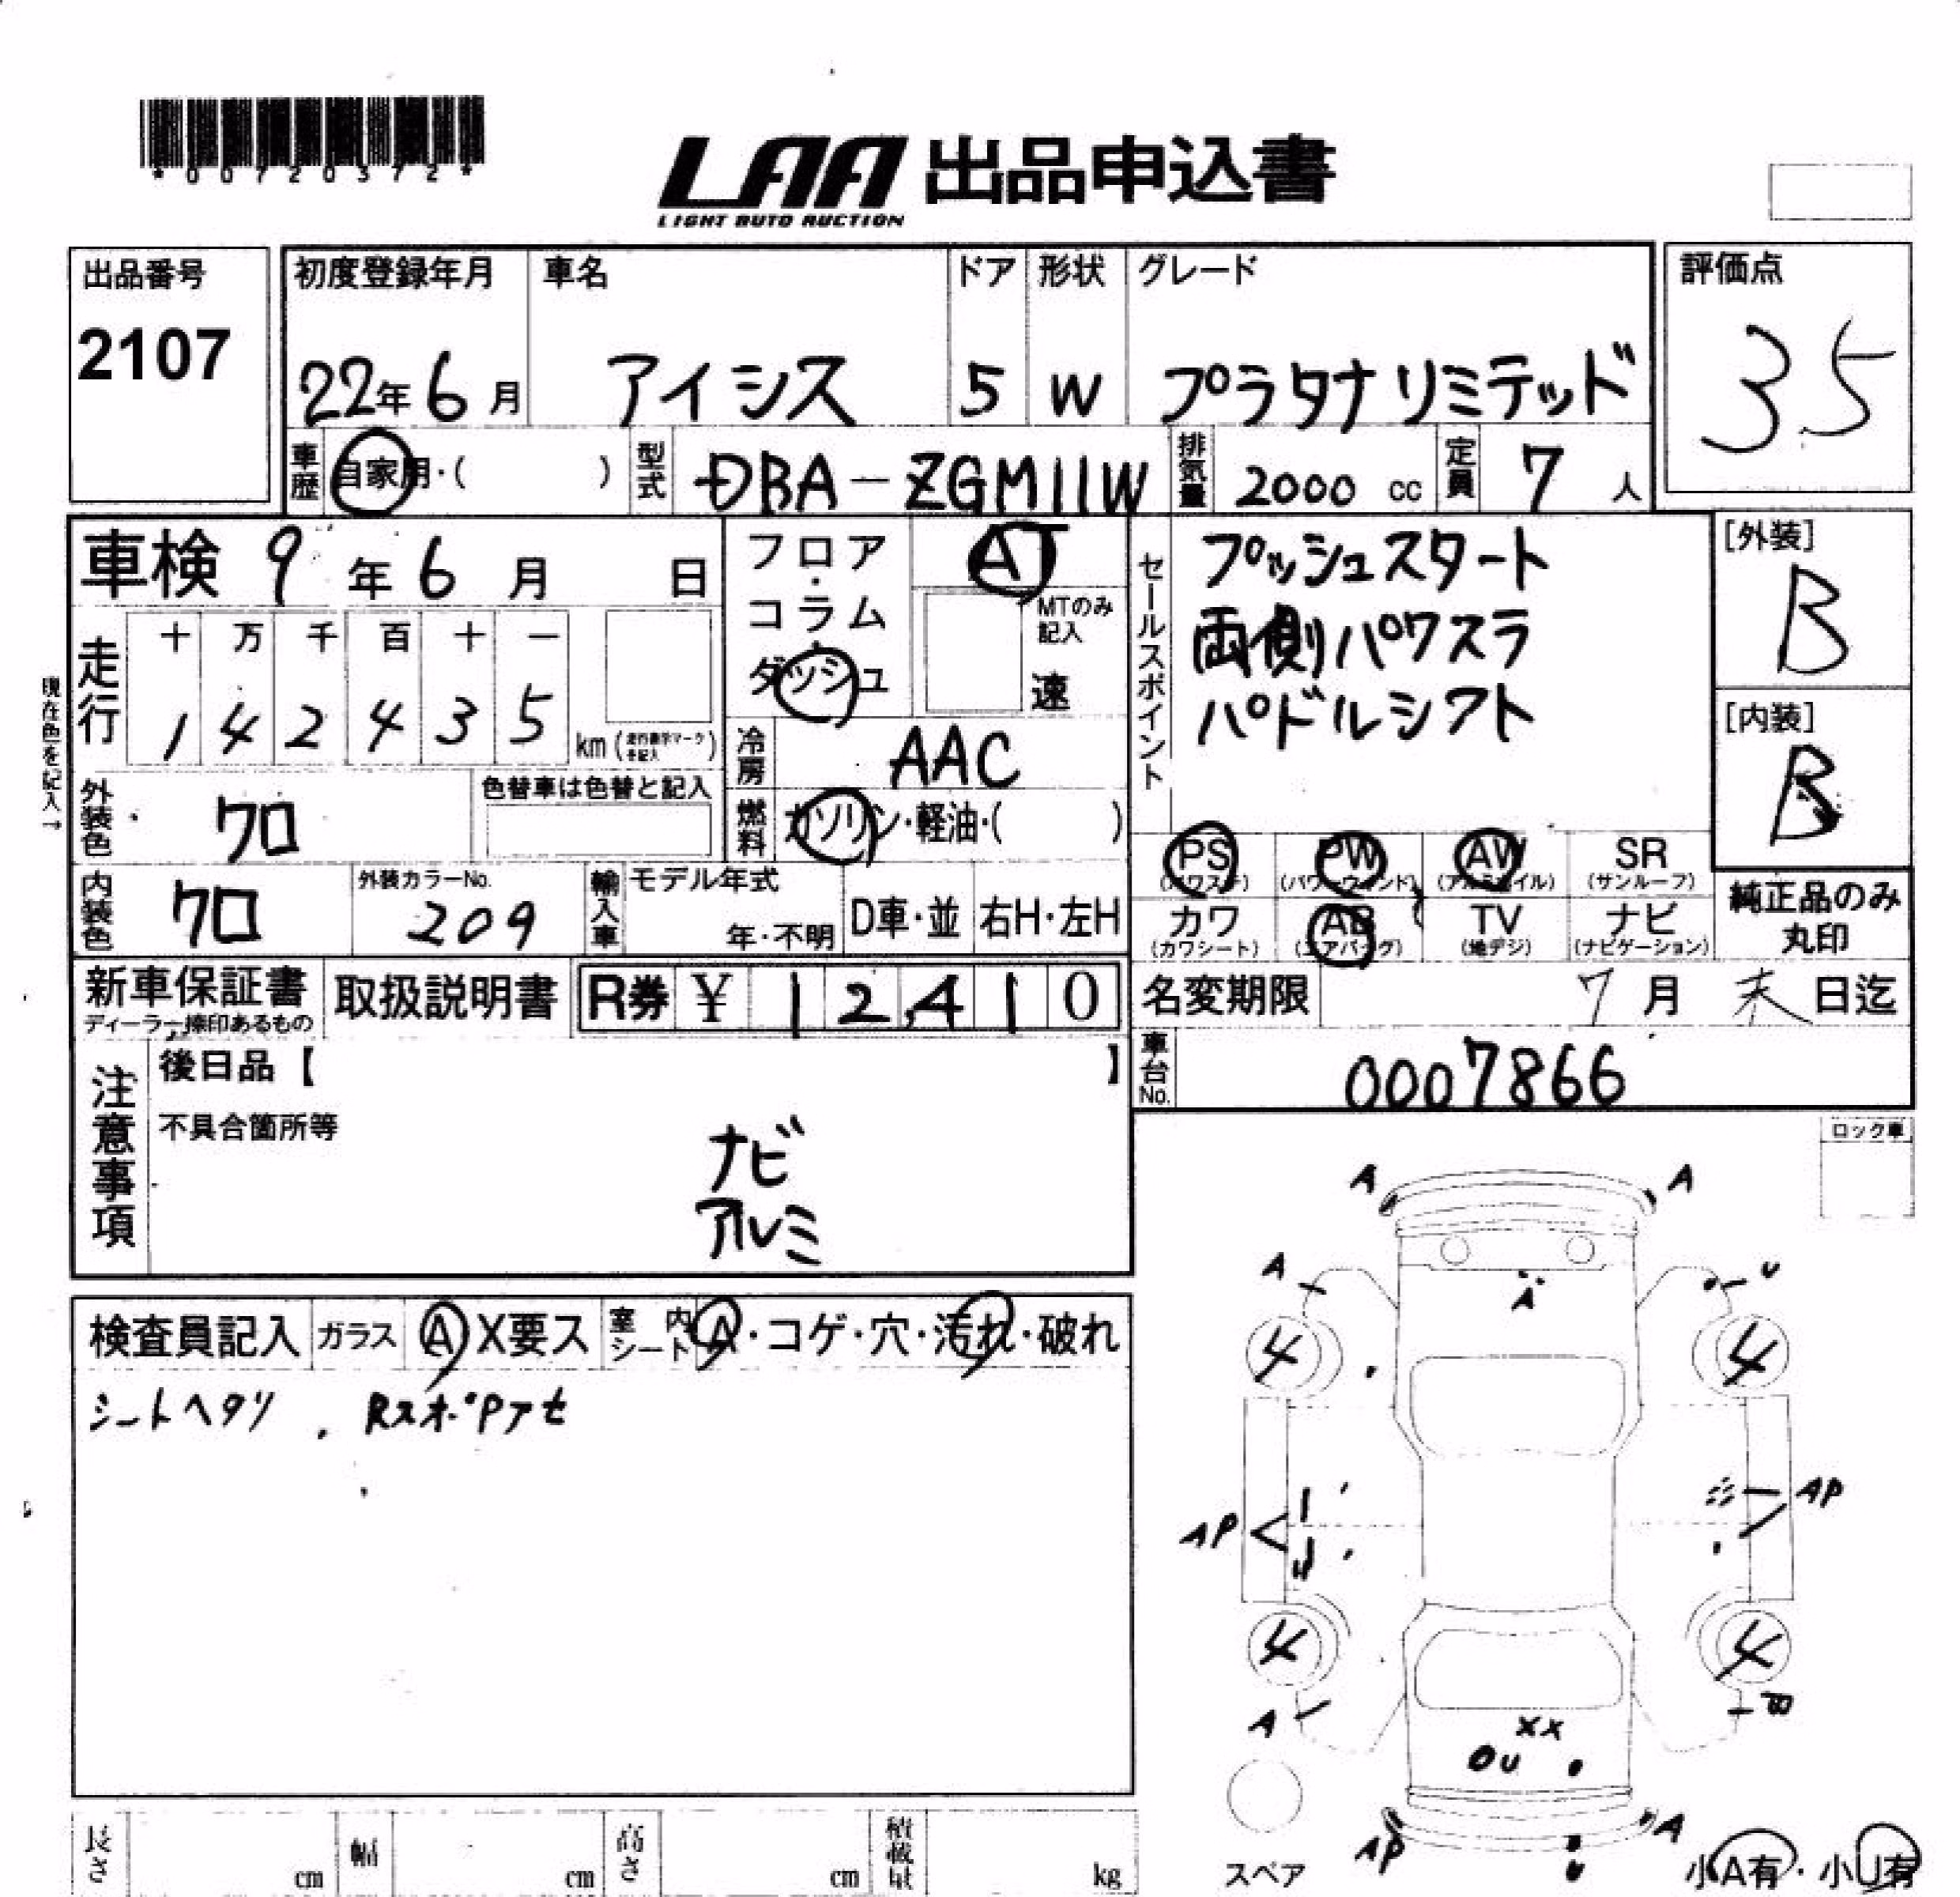 *00720372*
LAA 出品申込書
LIGHT AUTO AUCTION
出品番号
2107
初度登録年月
22年6月
車名
アイシス
ドア
5
形状
W
グレード
プラタナリミテッド
評価点
3.5
車歴
自家用・( )
型式
DBA-ZGM11W
排気量
2000 cc
定員
7 人
車検 9年6月 日
フロア・コラム・ダッシュ
AT
MTのみ記入
速
セールスポイント
プッシュスタート
両側パワスラ
パドルシフト
[外装]
B
[内装]
B
現在色を記入→
走行
十 万 千 百 十 一
1 4 2 4 3 5
km
冷房
AAC
外装色
クロ
色替車は色替と記入
燃料
ガソリン・軽油・( )
PS
(パワステ)
PW
(パワーウィンド)
AW
(アルミホイル)
SR
(サンルーフ)
内装色
クロ
外装カラーNo.
209
輸入車
モデル年式
年・不明
D車・並
右H・左H
カワ
(カワシート)
AB
(エアバッグ)
TV
(地デジ)
ナビ
(ナビゲーション)
純正品のみ
丸印
新車保証書
ディーラー捺印あるもの
取扱説明書
R券 ¥ 12,410
名変期限 7月末日迄
注意事項
後日品【 】
不具合箇所等
ナビ
アルミ
車台No.
0007866
ロック車
検査員記入
ガラス A X要ス
室内シート A・コゲ・穴・汚れ・破れ
シートヘタリ . RスポPアセ
A A
A U
A
4 4
AP AP
4 4
A B
XX
U
AP A
U
スペア
小A有・小U有
長さ cm
幅 cm
高さ cm
積載量 kg